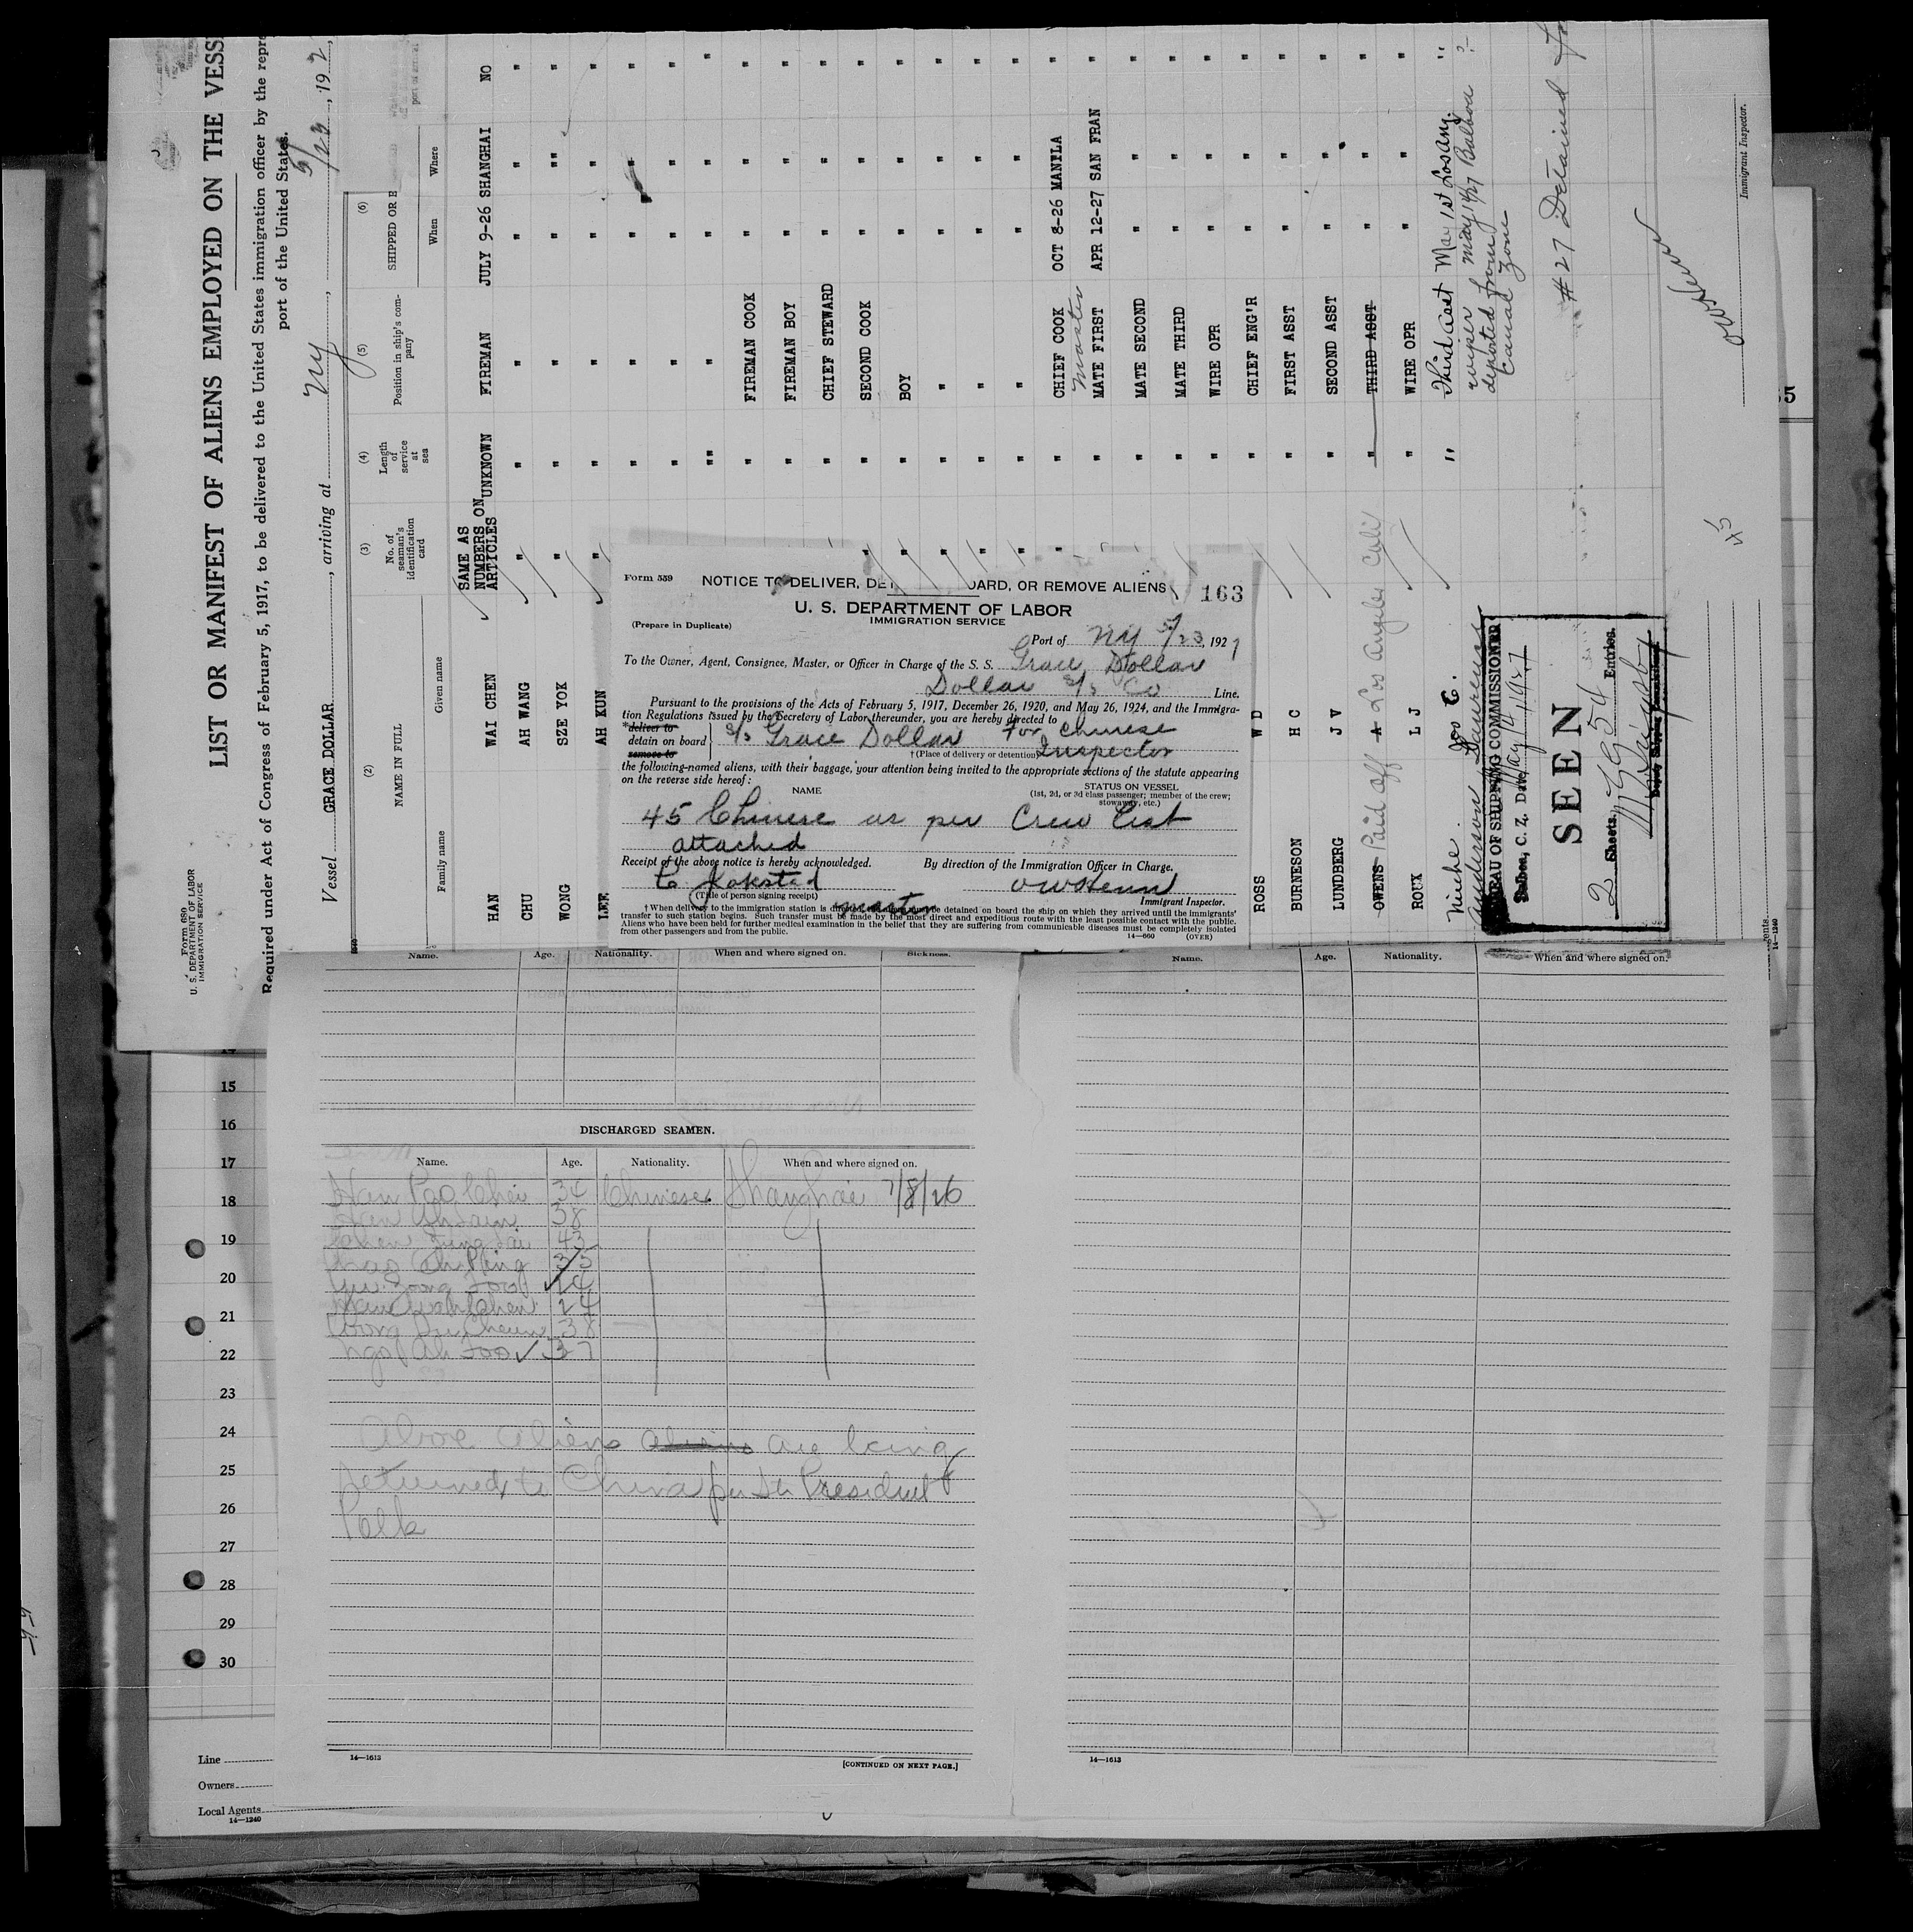 Form 680
U. S. DEPARTMENT OF LABOR
IMMIGRATION SERVICE
LIST OR MANIFEST OF ALIENS EMPLOYED ON THE VESS
Required under Act of Congress of February 5, 1917, to be delivered to the United States immigration officer by the repre
port of the United States.
Vessel GRACE DOLLAR, arriving at NY, 5/23, 192
(2) (3) (4) (5) (6)
NAME IN FULL No. of seaman's identification card Length of service at sea Position in ship's company SHIPPED OR E
Family name Given name When Where
HAN WAI CHEN SAME AS NUMBERS ON ARTICLES UNKNOWN FIREMAN JULY 9-26 SHANGHAI NO
CHU AH WANG " " " " " "
WONG SZE YOK " " " " "" "
LEE AH KUN " " " " " "
" " " " "
" " " " "
"" " " " "
" FIREMAN COOK " " "
" FIREMAN BOY " " "
" CHIEF STEWARD " " "
" " SECOND COOK " " "
" " BOY " " "
" " " " " "
" " " " " "
" " " " " "
" " CHIEF COOK OCT 8-26 MANILA "
Master
" MATE FIRST APR 12-27 SAN FRAN "
" MATE SECOND " " "
" MATE THIRD " " "
" WIRE OPR " " "
ROSS W D " CHIEF ENG'R " " "
BURNESON H C " FIRST ASST " " "
LUNDBERG J V " SECOND ASST " " "
OWENS A Paid off Los Angeles Cali " THIRD ASST " " "
ROUX L J " WIRE OPR " " "
Jos C. " Third asst May 1st Los Ang. "
Anderson Laurence wiper May 14/27 Balboa ?
deported from
Canal Zone
#27 Detained
BUREAU OF SHIPPING COMMISSIONER
Balboa, C. Z. Date May 14, 1927
SEEN
2 Sheets, 54 Entries.
Immigrant Inspector.
45
14—1240
Form 539
NOTICE TO DELIVER, DET OARD, OR REMOVE ALIENS
163
U. S. DEPARTMENT OF LABOR
IMMIGRATION SERVICE
(Prepare in Duplicate)
Port of NY 5/23, 1927
To the Owner, Agent, Consignee, Master, or Officer in Charge of the S. S. Grace Dollar
Dollar S/S Co Line.
Pursuant to the provisions of the Acts of February 5, 1917, December 26, 1920, and May 26, 1924, and the Immigra-
tion Regulations issued by the Secretary of Labor thereunder, you are hereby directed to
*deliver to
detain on board S/S Grace Dollar For Chinese
remove to †(Place of delivery or detention) Inspector
the following-named aliens, with their baggage, your attention being invited to the appropriate sections of the statute appearing
on the reverse side hereof:
NAME STATUS ON VESSEL
(1st, 2d, or 3d class passenger; member of the crew;
stowaway, etc.)
45 Chinese as per Crew List
attached
Receipt of the above notice is hereby acknowledged. By direction of the Immigration Officer in Charge.
(Title of person signing receipt) Immigrant Inspector.
master
† When delivery to the immigration station is directed, be detained on board the ship on which they arrived until the immigrants'
transfer to such station begins. Such transfer must be made by the most direct and expeditious route with the least possible contact with the public.
Aliens who have been held for further medical examination in the belief that they are suffering from communicable diseases must be completely isolated
from other passengers and from the public.
14—660 (OVER)
Name. Age. Nationality. When and where signed on. Sickness.
Name. Age. Nationality. When and where signed on.
DISCHARGED SEAMEN.
Name. Age. Nationality. When and where signed on.
Han Pao Chei 34 Chinese Shanghai 7/8/26
38
43
35
24
24
38
Ngo Ah Foo 37
Above aliens aliens are being
returned to China per SS President
Polk
14—1613 [CONTINUED ON NEXT PAGE.]
14—1613
14
15
16
17
18
19
20
21
22
23
24
25
26
27
28
29
30
Line
Owners
Local Agents
14—1240